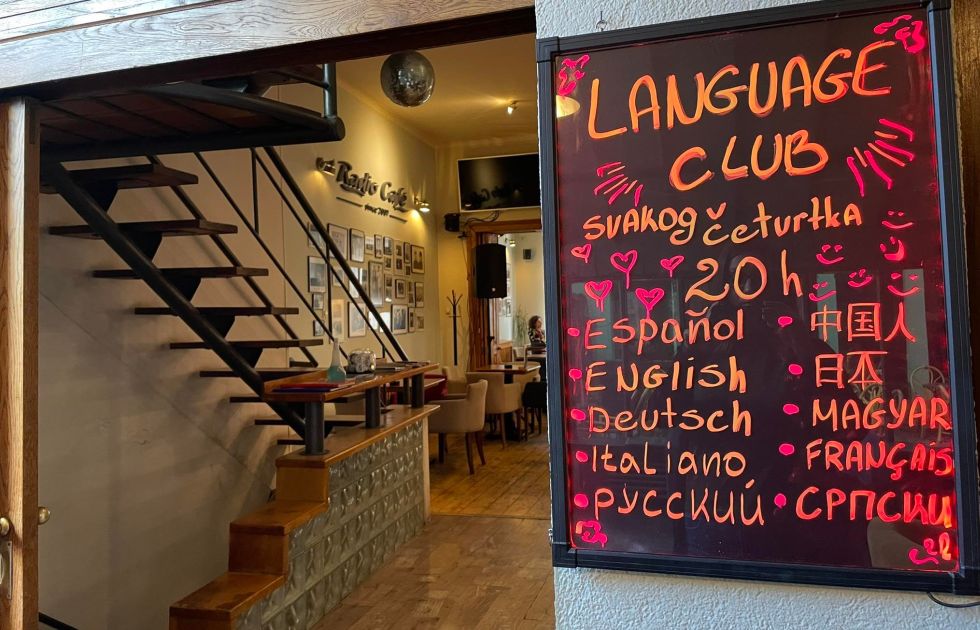 Radio Cafe
since 2007
LANGUAGE
CLUB
svakog četvrtka
20h
Español
ENGLISH
Deutsch
Italiano
РУССКИЙ
中国人
日本
MAGYAR
FRANÇAIS
СРПСКИ